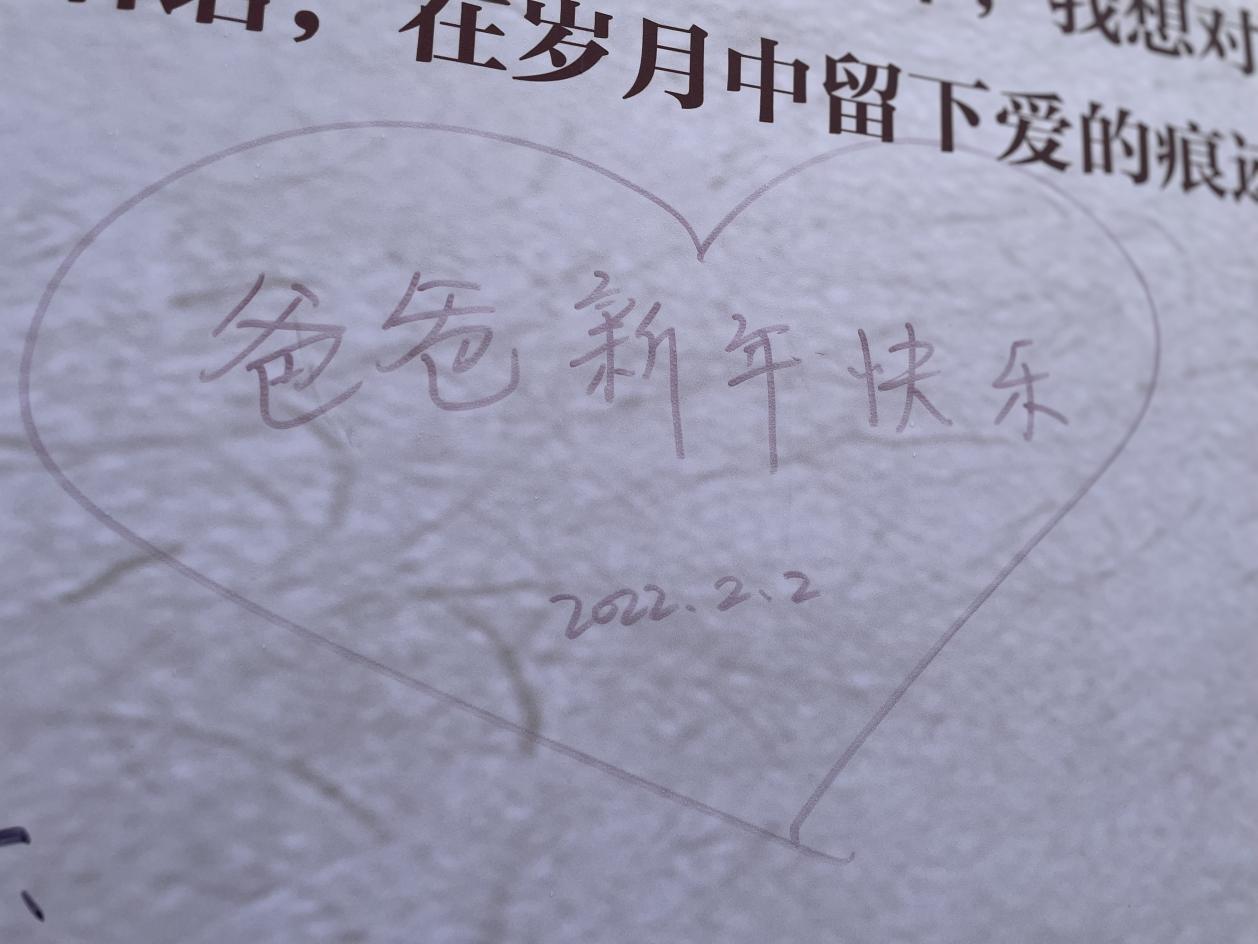 ，我想对
，在岁月中留下爱的痕迹
爸爸新年快乐
2022.2、2